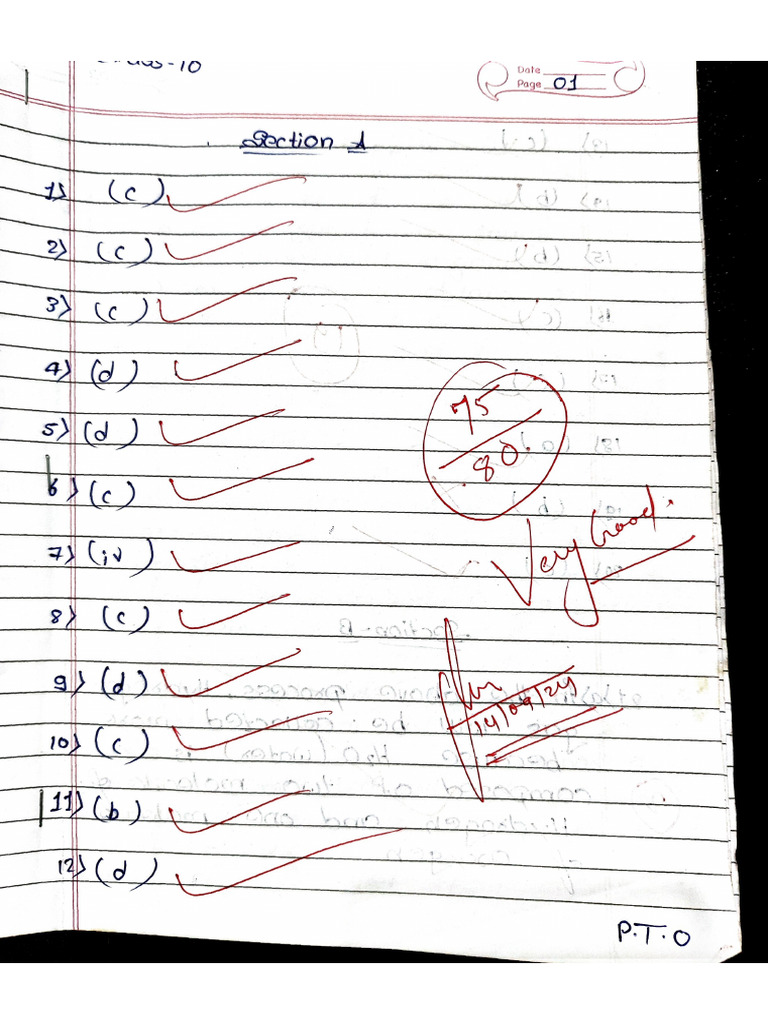 Class-10
Date
Page 01
Section A
1) (c)
2) (c)
3) (c)
4) (d)
5) (d)
6) (c)
7) (iv)
8) (c)
9) (d)
10) (c)
11) (b)
12) (d)
75
80
Very Good.
14/09/24
P.T.O